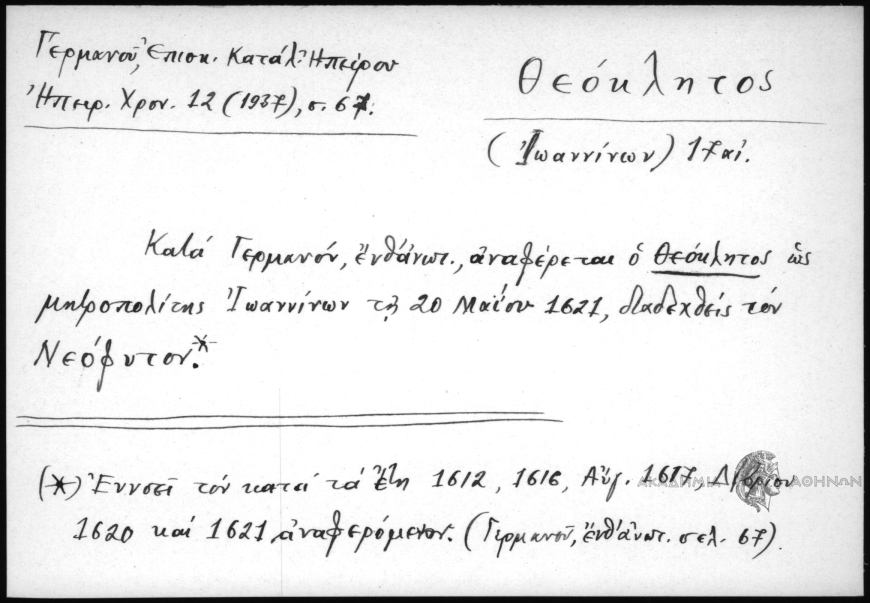 Γερμανοῦ, Ἐπισκ. Κατάλ. Ἠπείρου
Ἠπειρ. Χρον. 12 (1937), σ. 67.
Θεόκλητος
(Ἰωαννίνων) 17 αἰ.
Κατά Γερμανόν, ἔνθ' ἀνωτ., ἀναφέρεται ὁ Θεόκλητος ὡς
μητροπολίτης Ἰωαννίνων τῇ 20 Μαΐου 1621, διαδεχθείς τόν
Νεόφυτον.*
(*) Ἐννοεῖ τόν κατά τά ἔτη 1612, 1616, Αὔγ. 1617,
1620 καί 1621 ἀναφερόμενον. (Γερμανοῦ, ἔνθ' ἀνωτ. σελ. 67).
ΑΚΑΔΗΜΙΑ ΑΘΗΝΩΝ